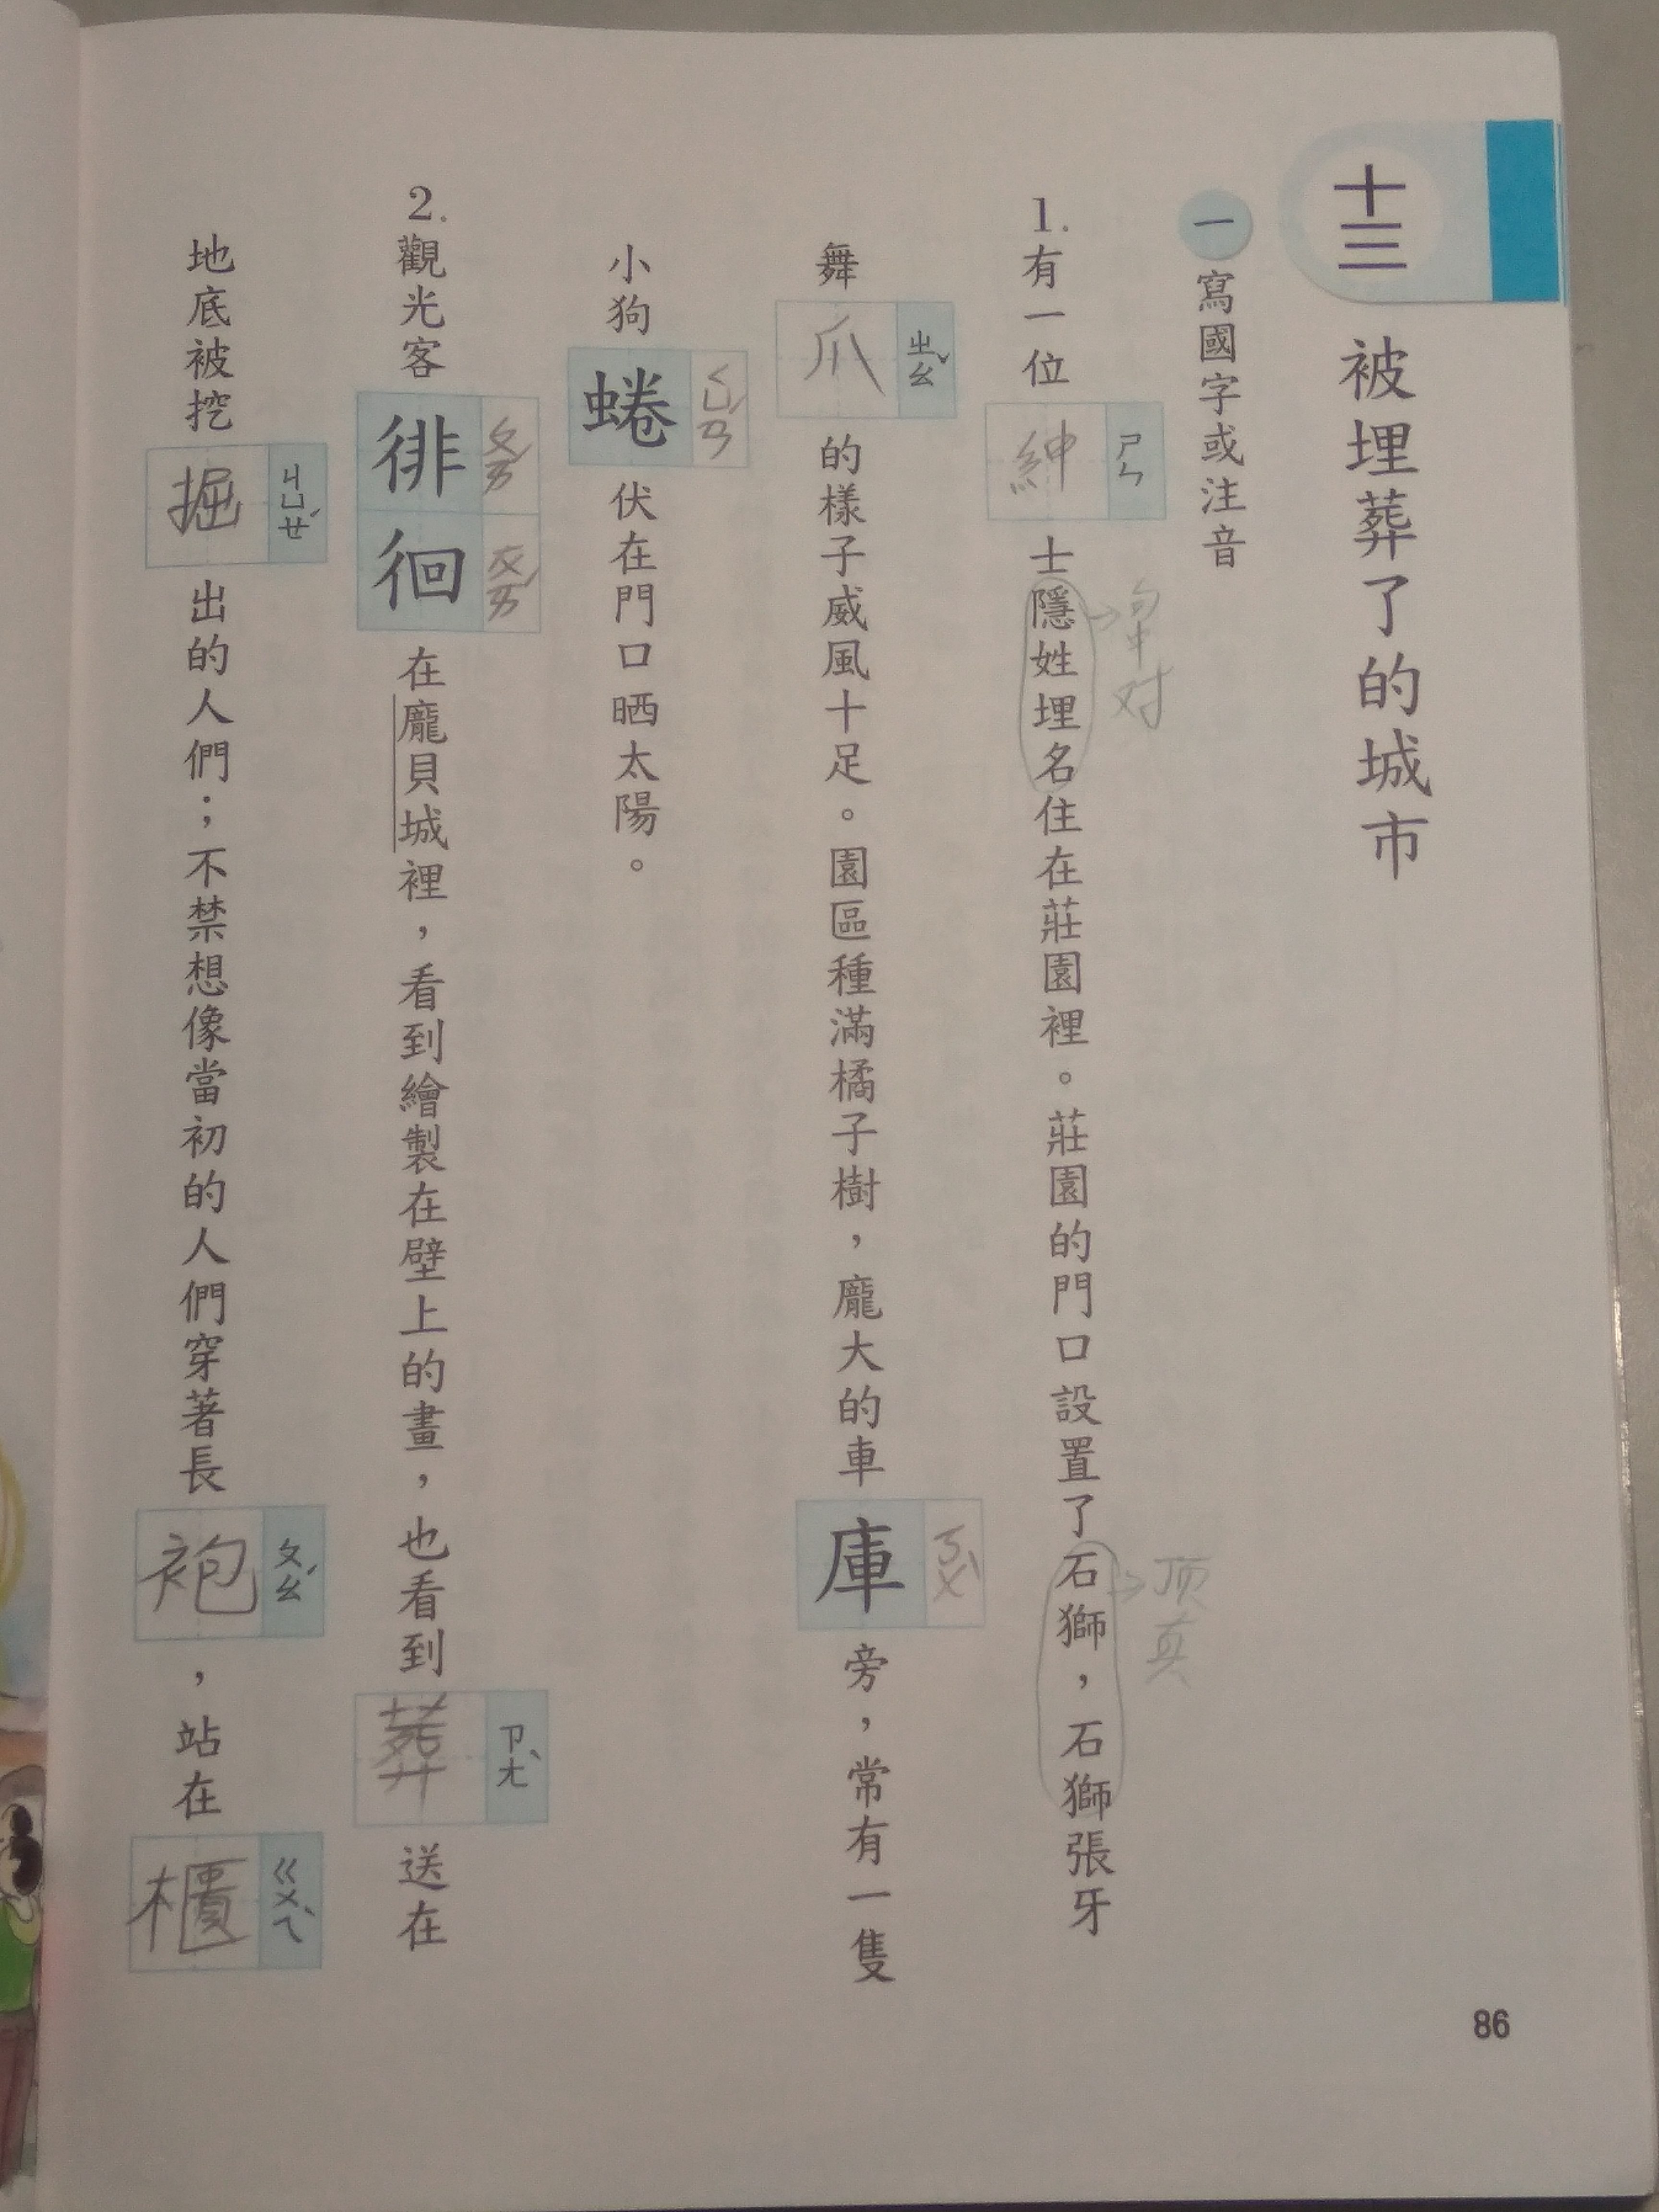 十三 被埋葬了的城市
一 寫國字或注音
1.有一位紳ㄕㄣ士隱姓埋名住在莊園裡。莊園的門口設置了石獅，石獅張牙
→句中对
→顶真
舞爪ㄓㄠˇ的樣子威風十足。園區種滿橘子樹，龐大的車庫ㄎㄨˋ旁，常有一隻
小狗蜷ㄑㄩㄢˊ伏在門口晒太陽。
2.觀光客徘ㄆㄞˊ徊ㄏㄨㄞˊ在龐貝城裡，看到繪製在壁上的畫，也看到葬ㄗㄤˋ送在
地底被挖掘ㄐㄩㄝˊ出的人們；不禁想像當初的人們穿著長袍ㄆㄠˊ，站在櫃ㄍㄨㄟˋ
86